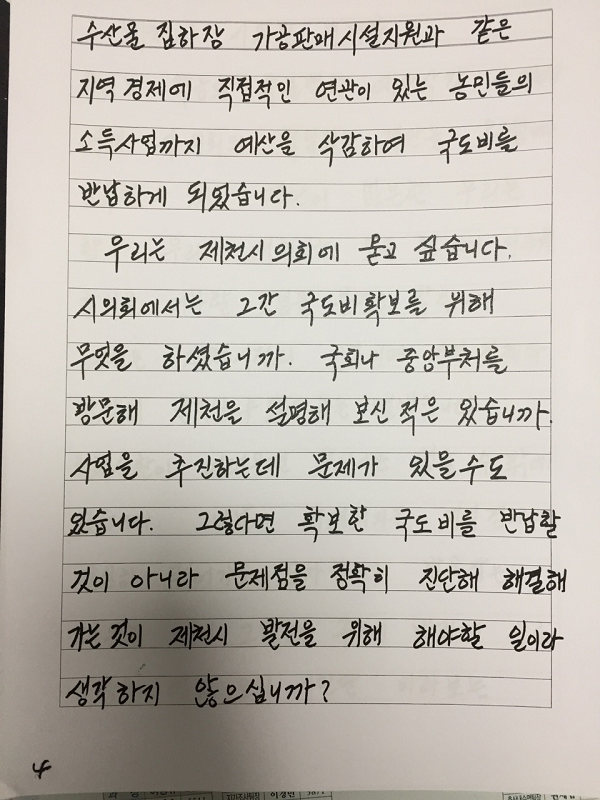 수산물 집하장 가공판매시설지원과 같은
지역경제에 직접적인 연관이 있는 농민들의
소득사업까지 예산을 삭감하여 국도비를
반납하게 되었습니다.
우리는 제천시의회에 묻고 싶습니다.
시의회에서는 그간 국도비확보를 위해
무엇을 하셨습니까. 국회나 중앙부처를
방문해 제천을 설명해 보신 적은 있습니까.
사업을 추진하는데 문제가 있을수도
있습니다. 그렇다면 확보한 국도비를 반납할
것이 아니라 문제점을 정확히 진단해 해결해
가는 것이 제천시 발전을 위해 해야할 일이라
생각하지 않으십니까?
4